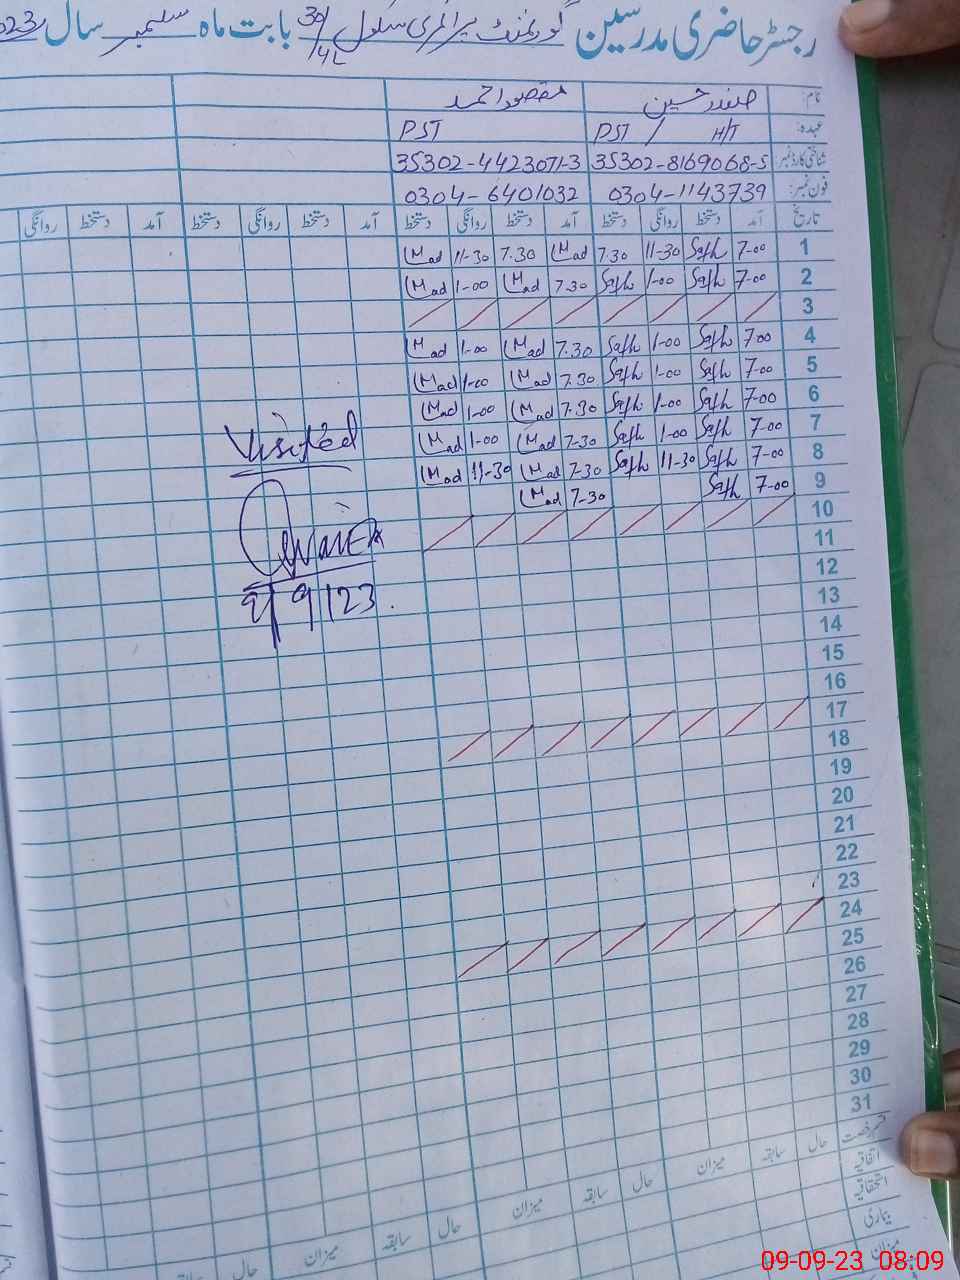 رجسٹر حاضری مدرسین گورنمنٹ پرائمری سکول 30/4L بابت ماہ ستمبر سال 2023
نام: صفدر حسین مقصود احمد
عہدہ: PST / H/T PST
شناختی کارڈ نمبر: 35302-8169068-5 35302-4423071-3
فون نمبر: 0304-1143739 0304-6401032
تاریخ آمد دستخط روانگی دستخط آمد دستخط روانگی دستخط آمد دستخط روانگی دستخط آمد دستخط روانگی
1 7-00 Safh 11-30 7.30 Mad 7.30 11-30 Mad
2 7-00 Safh 1-00 Safh 7.30 Mad 1-00 Mad
3
4 7-00 Safh 1-00 Safh 7.30 Mad 1-00 Mad
5 7-00 Safh 1-00 Safh 7.30 Mad 1-00 Mad
6 7-00 Safh 1-00 Safh 7.30 Mad 1-00 Mad
7 7-00 Safh 1-00 Safh 7-30 Mad 1-00 Mad
8 7-00 Safh 11-30 Safh 7-30 Mad 11-30 Mad
9 7-00 Safh 7-30 Mad
10
11
12
13
14
15
16
17
18
19
20
21
22
23
24
25
26
27
28
29
30
31
Visited
9/9/123
قسم رخصت حال سابقہ میزان حال سابقہ میزان حال سابقہ میزان حال
اتفاقیہ
استحقاقیہ
بیماری
میزان
09-09-23 08:09